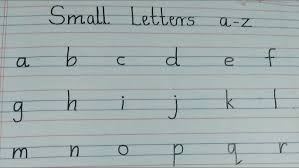 Small Letters a-z
a b c d e f
g h i j k l
m n o p q r